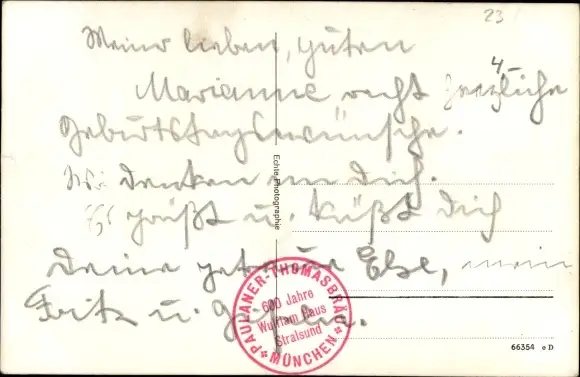 23
Meiner lieben, guten
4
Marianne recht herzliche
Geburtstagswünsche.
Wir denken an Dich.
Es grüßt u. küßt Dich
Deine getreue Else, mein
Fritz u.
Echte Photographie
PAULANER-THOMASBRÄU
600 Jahre
Wulflam Haus
Stralsund
MÜNCHEN
66354 e D